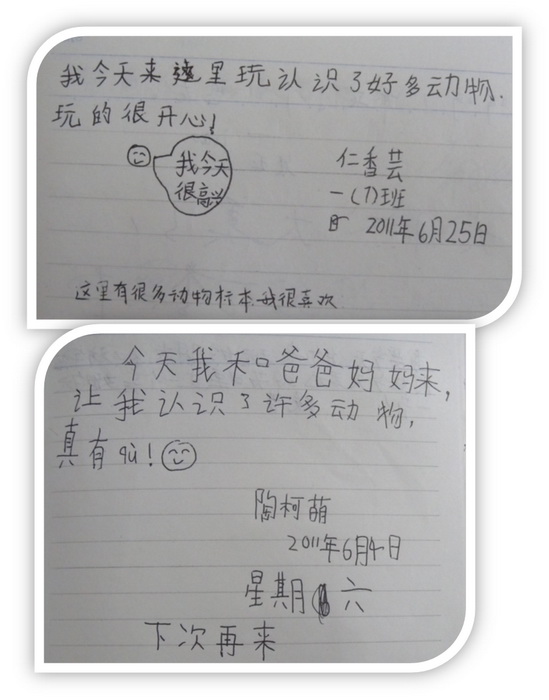 我今天来这里玩认识了好多动物.
玩的很开心!
我今天
很高兴
仁香芸
一(7)班
2011年6月25日
这里有很多动物标本.我很喜欢
今天我和爸爸妈妈来,
让我认识了许多动物,
真有qù!
陶柯萌
2011年6月4日
星期六
下次再来